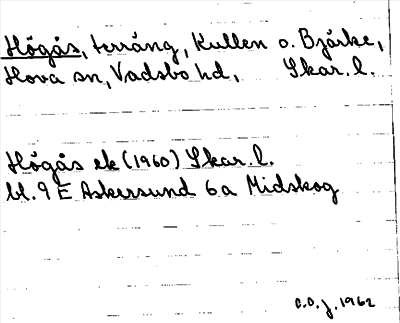 Högås, terräng, Kullen o. Bjärke,
Hova sn, Vadsbo hd, Skar. l.
Högås ek (1960) Skar. l.
bl. 9 E Askersund 6 a Midskog
C.O.J. 1962